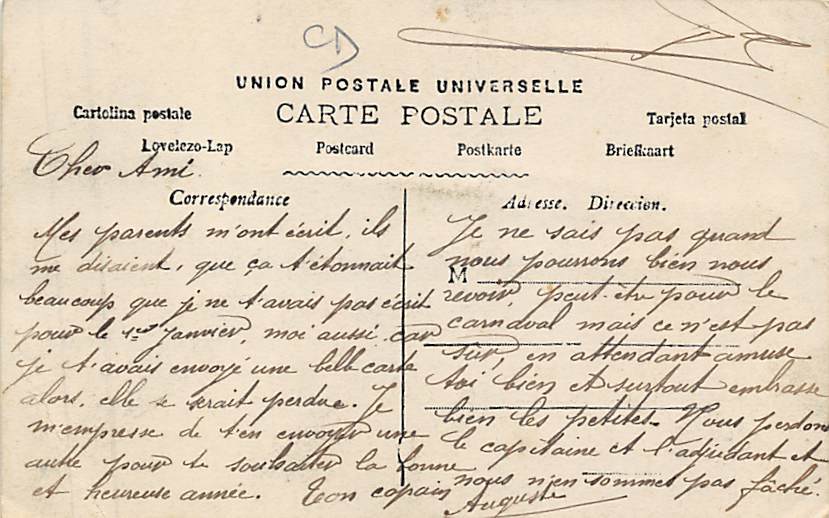 CD
UNION POSTALE UNIVERSELLE
CARTE POSTALE
Cartolina postale
Tarjeta postal
Levelezo-Lap
Postcard
Postkarte
Briefkaart
Cher Ami.
Correspondance
Mes parents m'ont écrit, ils
me disaient, que ça t'étonnait
beaucoup que je ne t'avais pas écrit
pour le 1er Janvier, moi aussi, car
je t'avais envoyé une belle carte
alors, elle se serait perdue. Je
m'empresse de t'en envoyer une
autre pour te souhaiter la bonne
et heureuse année. Ton copain
Adresse. Direccion.
M
Je ne sais pas quand
nous pourrons bien nous
revoir, peut-être pour le
carnaval mais ce n'est pas
sûr, en attendant amuse
toi bien et surtout embrasse
bien les petites. Nous perdons
le capitaine et l'adjudant et
nous n'en sommes pas fâché.
Auguste